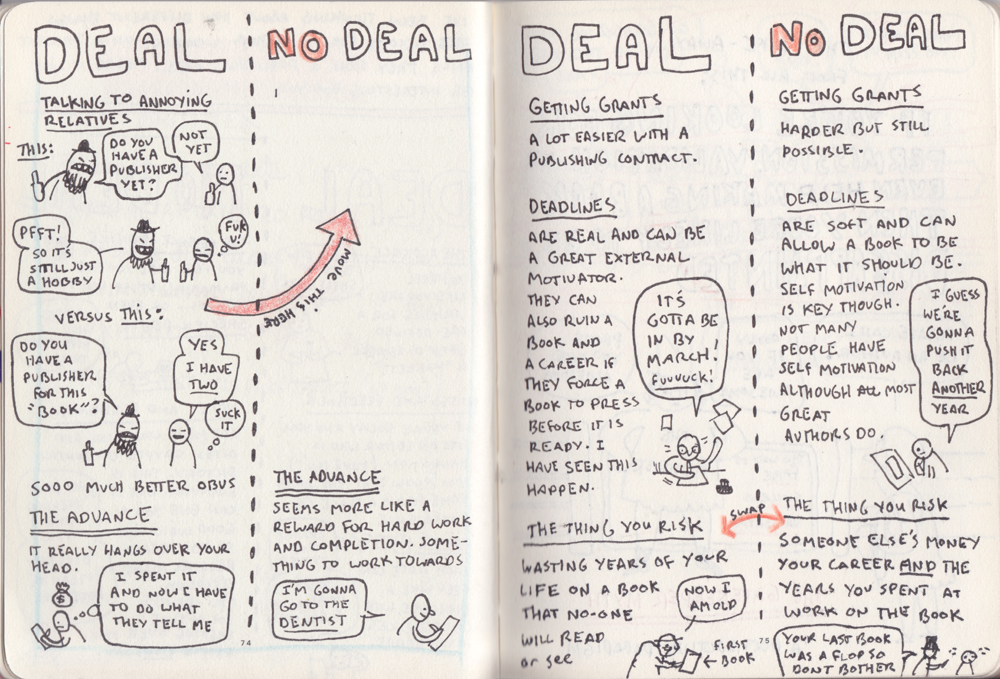 DEAL
NO DEAL
TALKING TO ANNOYING
RELATIVES
THIS:
DO YOU
HAVE A
PUBLISHER
YET?
NOT
YET
PFFT!
SO IT'S
STILL JUST
A HOBBY
FUK
U!
VERSUS THIS:
DO YOU
HAVE A
PUBLISHER
FOR THIS
"BOOK"?
YES
I HAVE
TWO
SUCK
IT
SOOO MUCH BETTER OBVS
THE ADVANCE
IT REALLY HANGS OVER YOUR
HEAD.
$
I SPENT IT
AND NOW I HAVE
TO DO WHAT
THEY TELL ME
74
MOVE THIS HERE
THE ADVANCE
SEEMS MORE LIKE A
REWARD FOR HARD WORK
AND COMPLETION. SOME-
THING TO WORK TOWARDS
I'M GONNA
GO TO THE
DENTIST
DEAL
NO DEAL
GETTING GRANTS
A LOT EASIER WITH A
PUBLISHING CONTRACT.
DEADLINES
ARE REAL AND CAN BE
A GREAT EXTERNAL
MOTIVATOR.
THEY CAN
ALSO RUIN A
BOOK AND
A CAREER IF
THEY FORCE A
BOOK TO PRESS
BEFORE IT IS
READY. I
HAVE SEEN THIS
HAPPEN.
IT'S
GOTTA BE
IN BY
MARCH!
FUUUUCK!
THE THING YOU RISK
WASTING YEARS OF YOUR
LIFE ON A BOOK
THAT NO-ONE
WILL READ
or see
NOW I
AM OLD
FIRST
BOOK
SWAP
GETTING GRANTS
HARDER BUT STILL
POSSIBLE.
DEADLINES
ARE SOFT AND CAN
ALLOW A BOOK TO BE
WHAT IT SHOULD BE.
SELF MOTIVATION
IS KEY THOUGH.
NOT MANY
PEOPLE HAVE
SELF MOTIVATION
ALTHOUGH MOST
GREAT
AUTHORS DO.
I GUESS
WE'RE
GONNA
PUSH IT
BACK
ANOTHER
YEAR
THE THING YOU RISK
SOMEONE ELSE'S MONEY
YOUR CAREER AND THE
YEARS YOU SPENT AT
WORK ON THE BOOK
75
YOUR LAST BOOK
WAS A FLOP SO
DON'T BOTHER